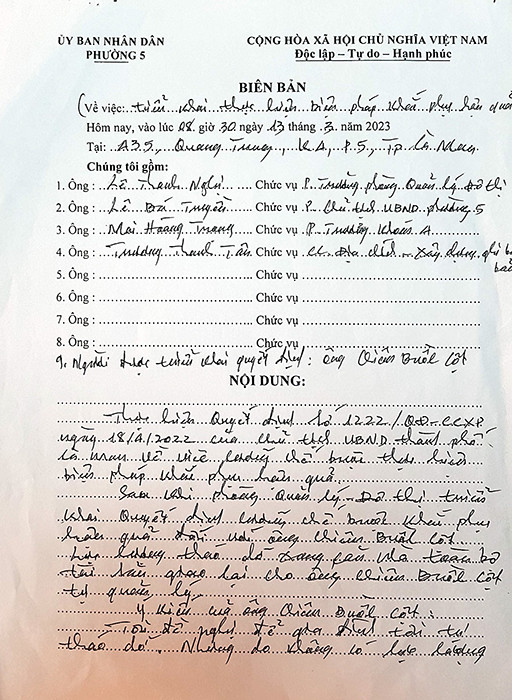 ỦY BAN NHÂN DÂN
PHƯỜNG 5
CỘNG HÒA XÃ HỘI CHỦ NGHĨA VIỆT NAM
Độc lập – Tự do – Hạnh phúc
BIÊN BẢN
(Về việc: triển khai thực hiện biện pháp khắc phục hậu quả
Hôm nay, vào lúc 08 giờ 30 ngày 13 tháng 3 năm 2023
Tại: A35, Quang Trung, K4, P.5, Tp Cà Mau
Chúng tôi gồm:
1. Ông : Lê Thanh Nghị Chức vụ P. Trưởng phòng Quản lý Đô thị
2. Ông : Lê Bá Truyền Chức vụ P. Chủ tịch UBND phường 5
3. Ông : Mai Hoàng Chức vụ P. Trưởng Khóm 4
4. Ông : Trương Thanh Tân Chức vụ CC. Địa chính - Xây dựng, ghi
5. Ông : Chức vụ
6. Ông : Chức vụ
7. Ông : Chức vụ
8. Ông : Chức vụ
9. Người được triển khai quyết định : ông Chiêm Buôl Cột
NỘI DUNG:
Thực hiện Quyết định số 1222/QĐ-CCXP
ngày 18/4/2022 của Chủ tịch UBND thành phố
Cà Mau về việc cưỡng chế buộc thực hiện
biện pháp khắc phục hậu quả.
Sau khi phòng Quản lý Đô thị triển
khai Quyết định cưỡng chế buộc khắc phục
hậu quả đối với ông Chiêm Buôl Cột
Lực lượng tháo dỡ xong căn nhà toàn bộ
tài sản giao lại cho ông Chiêm Buôl Cột
tự quản lý.
Ý kiến của ông Chiêm Buôl Cột :
Tôi đề nghị để gia đình tôi tự
tháo dỡ. Nhưng do không có lực lượng